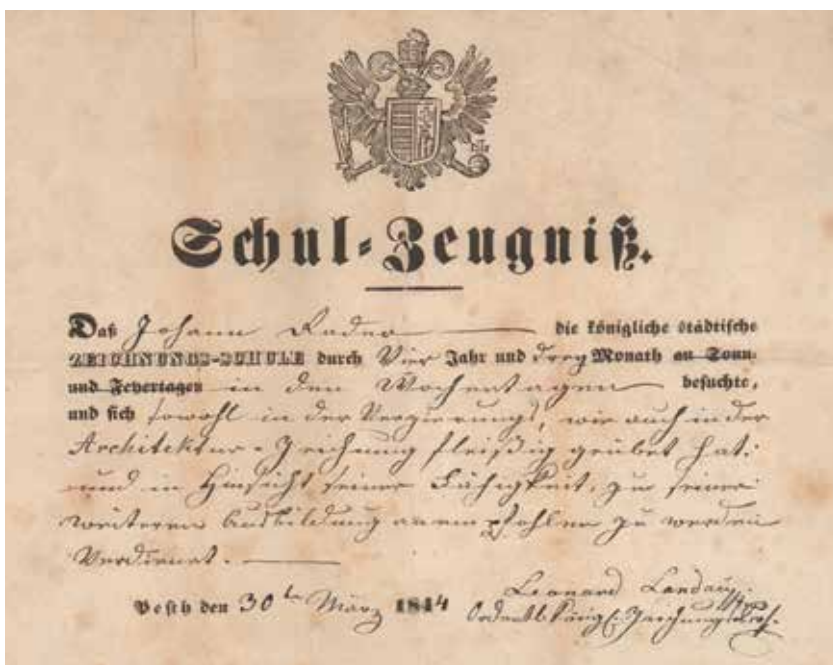 Schul-Zeugniß.
Daß Johann Rader die königliche städtische
ZEICHNUNGS-SCHULE durch Vier Jahr und drey Monath an Sonn-
und Feyertagen in den Wochentagen besuchte,
und sich sowohl in der Verzierungs, wie auch in der
Architektur-Zeichnung fleißig geübet hat:
und in Hinsicht seiner Fähigkeit, zu seiner
weiteren Ausbildung anempfohlen zu werden
Verdienet.
Pesth den 30ten März 1844
Leonard Landau
Ordentl. Königl. Zeichnungs Prof.